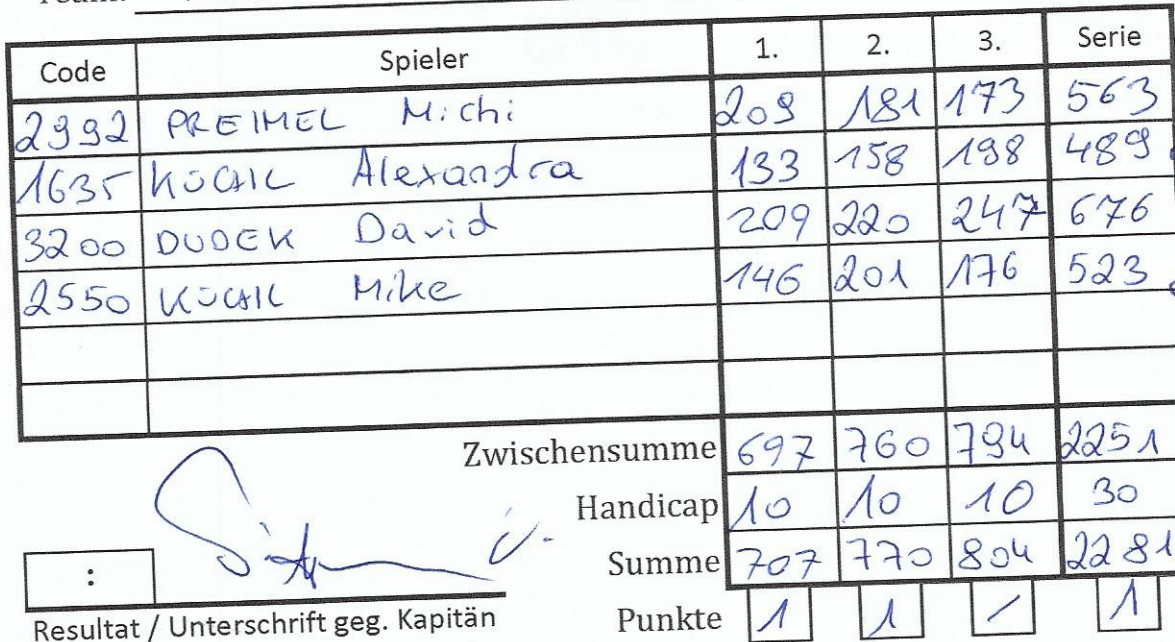 Code Spieler 1. 2. 3. Serie
2992 PREIMEL Michi 209 181 173 563
1635 KÜCHL Alexandra 133 158 198 489
3200 DUDEK David 209 220 247 676
2550 KÜCHL Mike 146 201 176 523
Zwischensumme 697 760 794 2251
Handicap 10 10 10 30
: Summe 707 770 804 2281
Resultat / Unterschrift geg. Kapitän Punkte 1 1 / 1